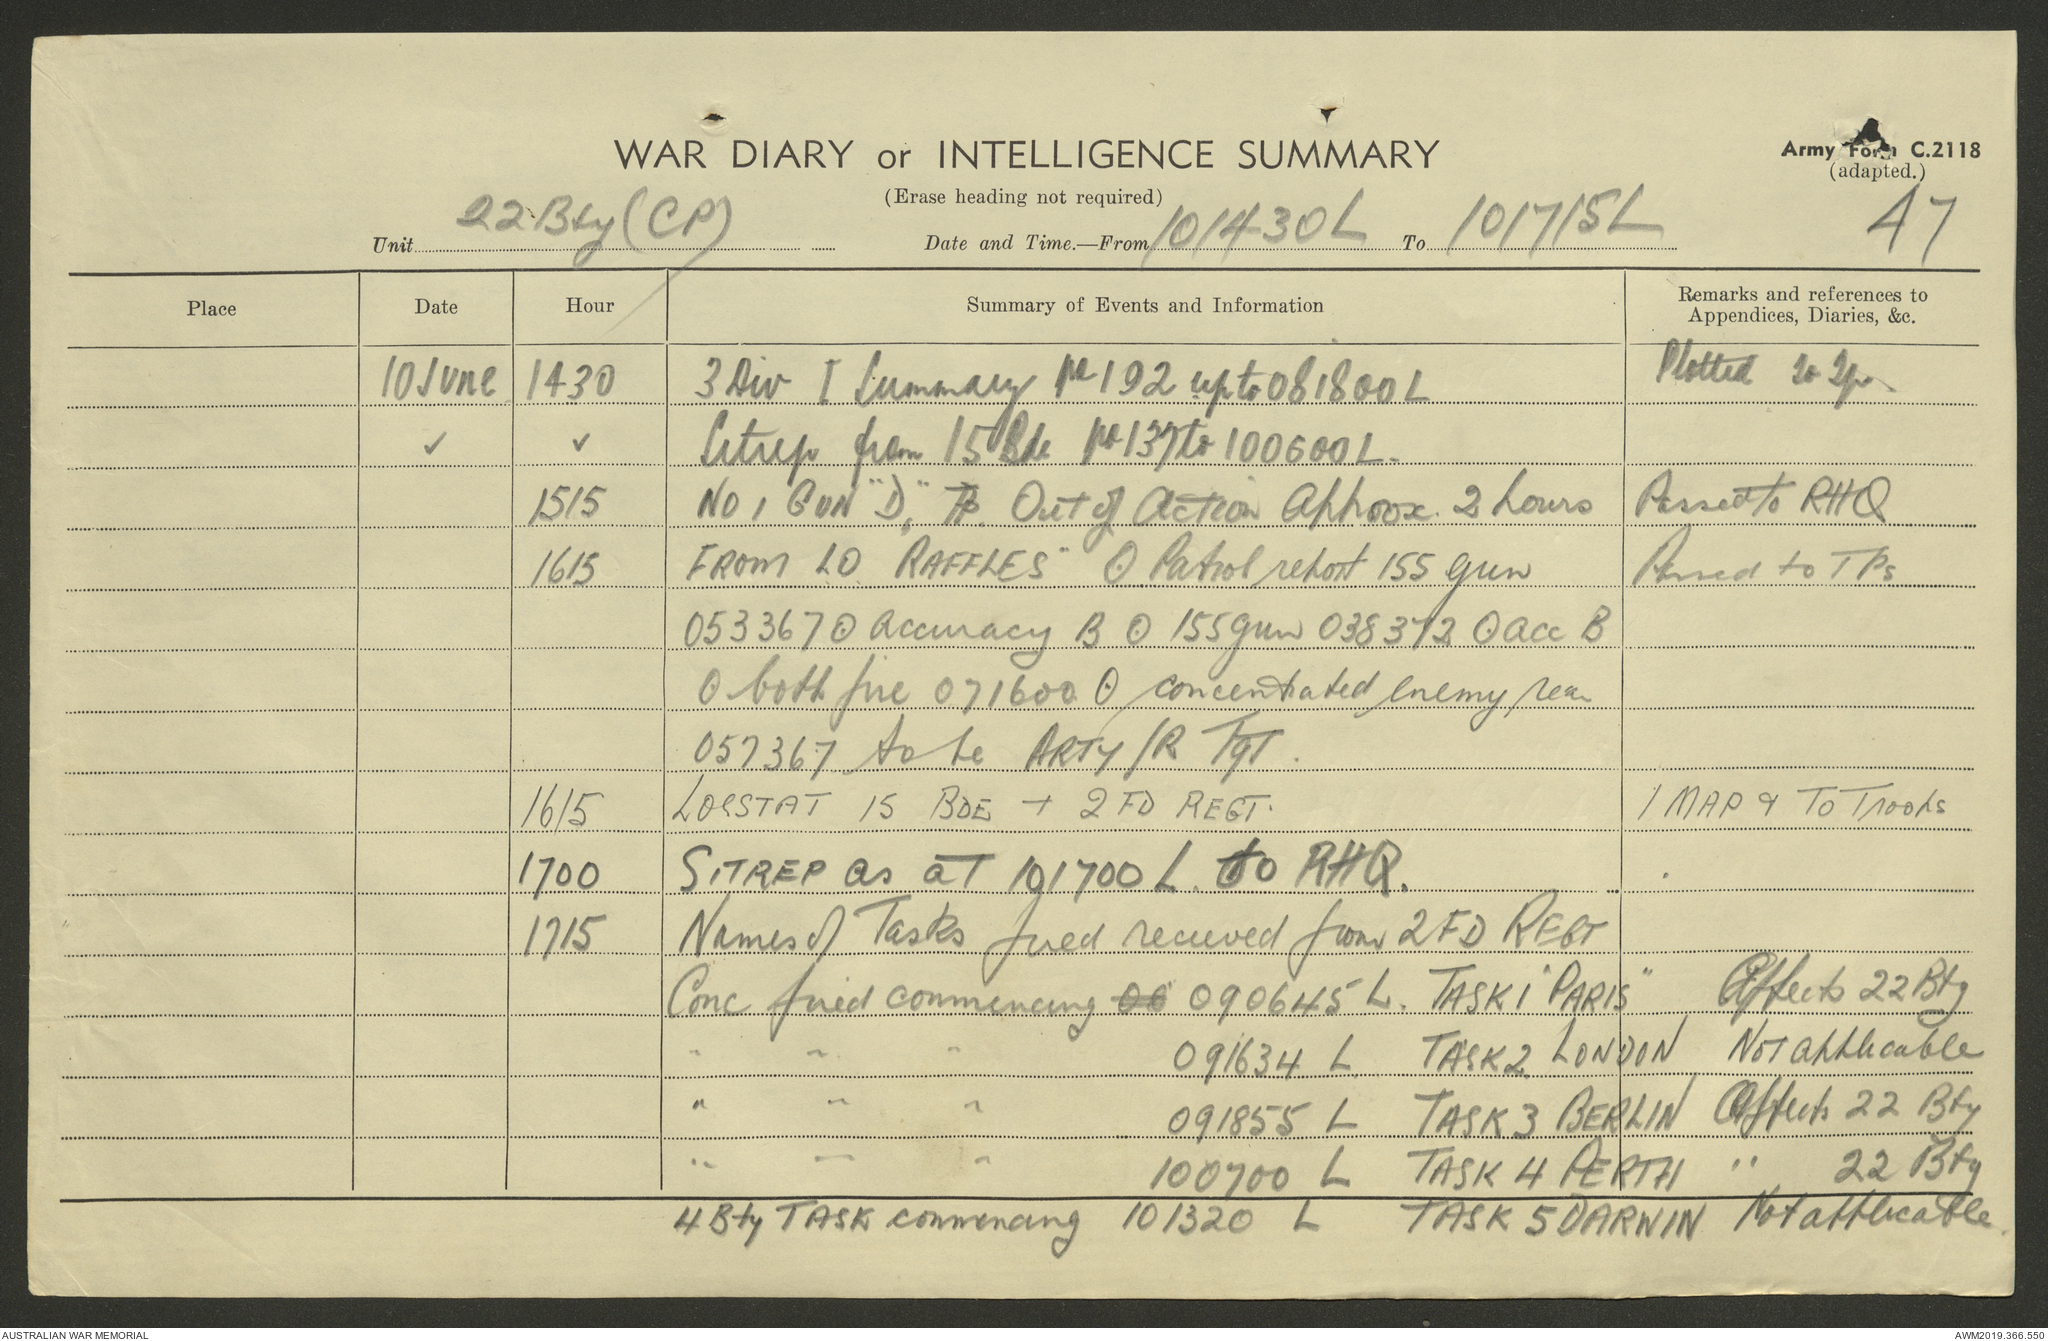 WAR DIARY or INTELLIGENCE SUMMARY
Army Form C.2118
(adapted.)
(Erase heading not required)
47
Unit 22 Bty (CP) Date and Time.—From 101430L To 101715L
Place Date Hour Summary of Events and Information Remarks and references to Appendices, Diaries, &c.
10 June 1430 3 Div I Summary No 192 up to 081800L Plotted to
✓ ✓ Sitrep from 15 Bde No 137 to 100600L.
1515 NO 1 GUN "D" Tp. Out of Action Approx. 2 hours Passed to RHQ
1615 FROM LO RAFFLES" ʘ Patrol report 155 gun Passed to TPs
053367 ʘ accuracy B ʘ 155 gun 038372 ʘ acc B
ʘ both fire 071600 ʘ concentrated enemy rear
057367 to be ARTY/R TgT.
1615 LOCSTAT 15 BDE + 2 FD REGT. 1 MAP & TO Troops
1700 SITREP as at 101700 L. to RHQ.
1715 Names of Tasks fired recieved from 2 FD REGT
Conc fired commencing 06 090645 L. TASK 1 "PARIS" Affects 22 Bty
" " " 091634 L TASK 2 LONDON Not applicable
" " " 091855 L TASK 3 BERLIN Affects 22 Bty
" " " 100700 L TASK 4 PERTH " 22 Bty
4 Bty TASK commencing 101320 L TASK 5 DARWIN Not applicable.
AUSTRALIAN WAR MEMORIAL
AWM2019.366.550